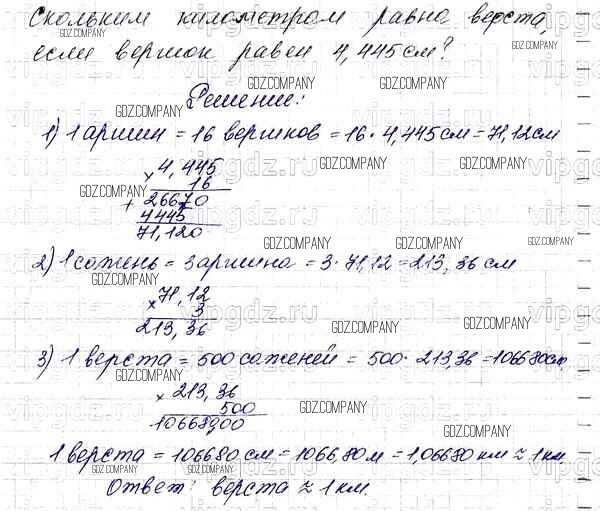 Скольким километрам равна верста,
если вершок равен 4,445 см?
Решение:
1) 1 аршин = 16 вершков = 16 · 4,445 см = 71,12 см
× 4,445
16
+ 26670
4445
71,120
2) 1 сажень = 3 аршина = 3 · 71,12 = 213,36 см
× 71,12
3
213,36
3) 1 верста = 500 саженей = 500 · 213,36 = 106680 см.
× 213,36
500
106680,00
1 верста = 106680 см = 1066,80 м = 1,06680 км ≈ 1 км
Ответ: верста ≈ 1 км.
GDZ.COMPANY
vipgdz.ru